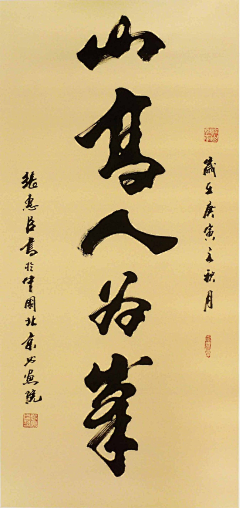 山高人为峯
岁在庚寅之秋月
张惠臣书于中国北京书画院